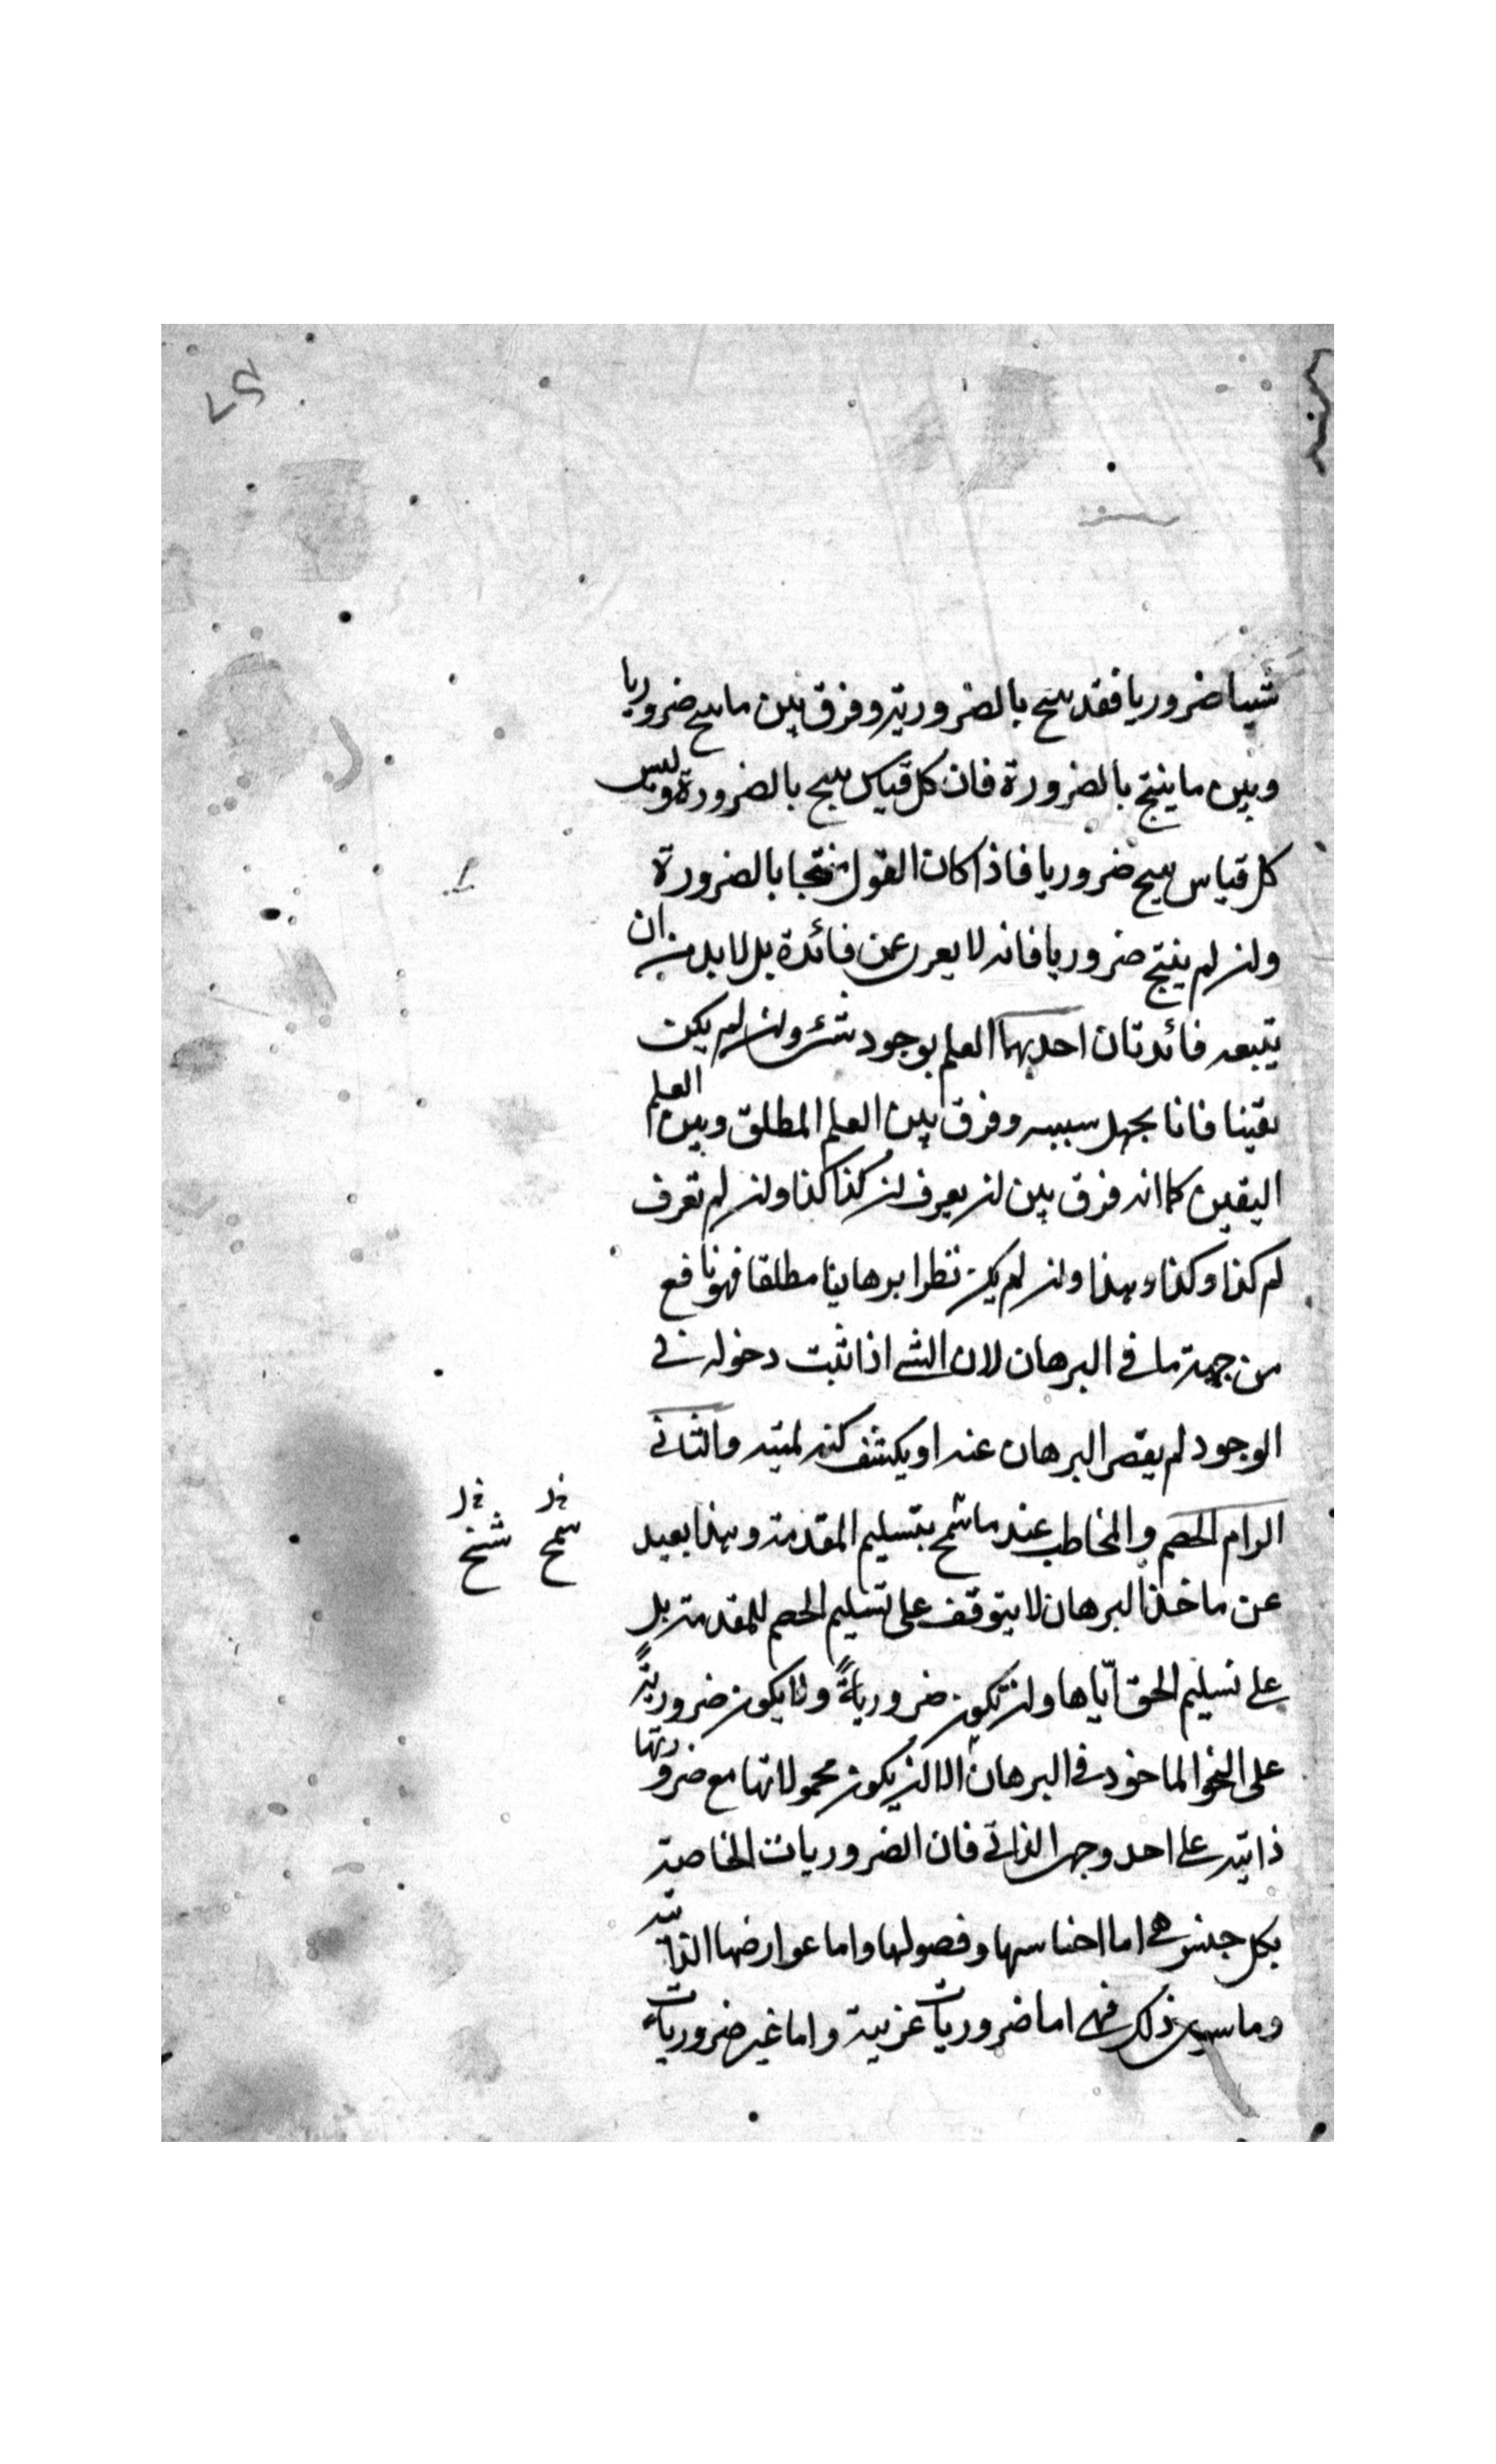 شيئا ضروريا فقد ينتج بالضرورية وفرق بين ما ينتج ضروريا
وبين ما ينتج بالضرورة فان كل قياس ينتج بالضرورة وليس
كل قياس ينتج ضروريا فاذا كان القول منتجا بالضرورة
وان لم ينتج ضروريا فانه لا يعرى عن فائدة بل لا بد من ان
يتبعه فائدتان احديهما العلم بوجود شئ وان لم يكن
يقينا فانا نجهل سببه وفرق بين العلم المطلق وبين العلم
اليقين كما انه فرق بين ان يعرف ان كذا كذا وان لم تعرف
لم كذا وكذا وهذا وان لم يكن نظرا برهانيا مطلقا فهو نافع
من جهة ما في البرهان لان الشئ اذا ثبت دخوله في
الوجود لم يقصر البرهان عنه او يكشف كنه لميته والثاني
الزام الخصم والمخاطب عند ما سمح بتسليم المقدمة وهذا بعيد
عن ماخذ البرهان لا يتوقف على تسليم الخصم للمقدمة بل
على تسليم الحق اياها وان تكون ضرورية ولا يكون ضرورية
على النحو الماخوذ في البرهان الا ان يكون محمولاتها مع ضرورتها
ذاتية على احد وجهى الذاتي فان الضروريات الخاصة
بكل جنس هي اما اجناسها وفصولها واما عوارضها الذاتية
وما سوى ذلك فهي اما ضروريات غريبة واما غير ضروريات